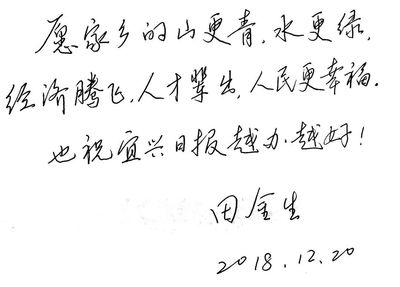 愿家乡的山更青,水更绿,
经济腾飞,人才辈出,人民更幸福.
也祝宜兴日报越办越好!
田金生
2018.12.20